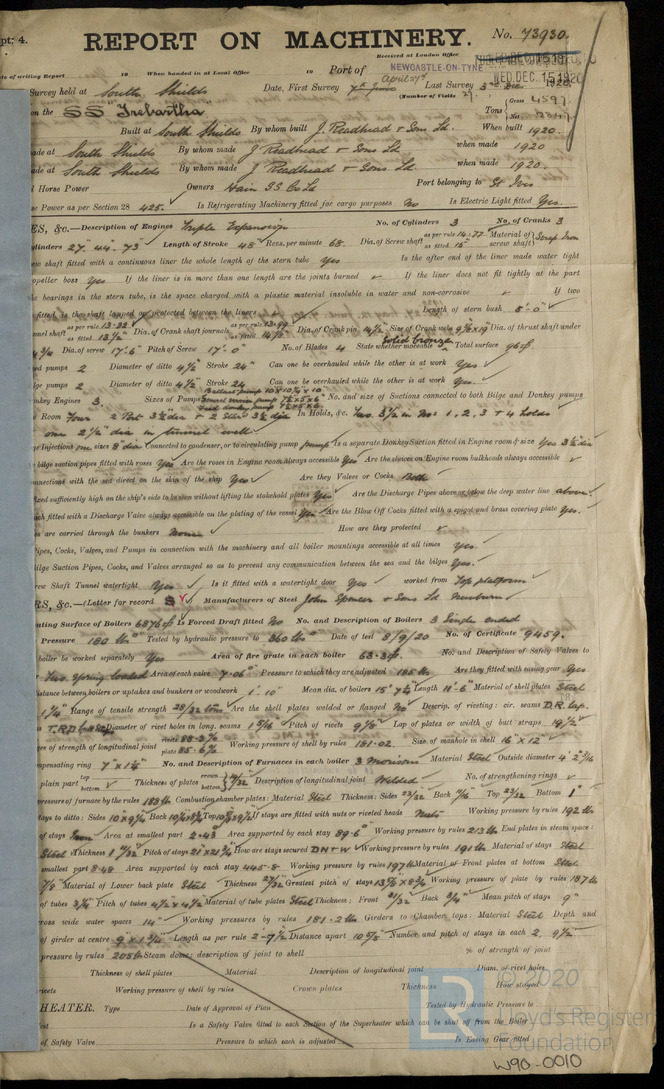 pt: 4.
REPORT ON MACHINERY. No. 73930.
Received at London Office
of writing Report 19 When handed in at Local Office 19 Port of NEWCASTLE-ON-TYNE WED. DEC. 15 1920
Survey held at South Shields Date, First Survey Last Survey 1920
(Number of Visits
on the SS "Trebartha" Tons Gross 4597 Net
Built at South Shields By whom built J. Readhead & Sons Ld. When built 1920.
ade at South Shields By whom made J Readhead & Sons Ld when made 1920
ade at South Shields By whom made J Readhead & Sons Ld when made 1920.
l Horse Power Owners Hain SS Co Ld Port belonging to St Ives
se Power as per Section 28 425. Is Refrigerating Machinery fitted for cargo purposes No Is Electric Light fitted Yes.
ES, &c.—Description of Engines Triple Expansion No. of Cylinders 3 No. of Cranks 3
ylinders 27" 44" 73" Length of Stroke 48" Revs. per minute 68. Dia. of Screw shaft as per rule 14.77 as fitted 15" Material of screw shaft Scrap Iron
ew shaft fitted with a continuous liner the whole length of the stern tube Yes Is the after end of the liner made water tight
opeller boss Yes If the liner is in more than one length are the joints burned If the liner does not fit tightly at the part
he bearings in the stern tube, is the space charged with a plastic material insoluble in water and non-corrosive If two
fitted, is the shaft lapped or protected between the liners Length of stern bush 5'-0"
unnel shaft as per rule 13.32 as fitted 13½" Dia. of Crank shaft journals as per rule 13.99 as fitted 14½" Dia. of Crank pin 14½" Size of Crank webs 9½x19 Dia. of thrust shaft under
Dia. of screw 17'-6" Pitch of Screw 17'-0" No. of Blades 4 State whether moveable Solid bronze Total surface 96 sf
ed pumps 2 Diameter of ditto 4½" Stroke 24" Can one be overhauled while the other is at work Yes
ge pumps 2 Diameter of ditto 4½" Stroke 24 Can one be overhauled while the other is at work Yes.
onkey Engines 3. Sizes of Pumps No. and size of Suctions connected to both Bilge and Donkey pumps
e Room Four In Holds, &c. Two. 3½ in No: 1, 2, 3 + 4 holds
one 2½" dia in tunnel well
ge Injections one sizes 8" dia Connected to condenser, or to circulating pump pump Is a separate Donkey Suction fitted in Engine room & size Yes 3½ dia
e bilge suction pipes fitted with roses Yes Are the roses in Engine room always accessible Yes Are the sluices on Engine room bulkheads always accessible
nnections with the sea direct on the skin of the ship Yes Are they Valves or Cocks Both
ixed sufficiently high on the ship's side to be seen without lifting the stokehold plates Yes Are the Discharge Pipes above or below the deep water line above.
ch fitted with a Discharge Valve always accessible on the plating of the vessel Yes Are the Blow Off Cocks fitted with a spigot and brass covering plate Yes.
es are carried through the bunkers None How are they protected
ipes, Cocks, Valves, and Pumps in connection with the machinery and all boiler mountings accessible at all times Yes.
ilge Suction Pipes, Cocks, and Valves arranged so as to prevent any communication between the sea and the bilges Yes.
rew Shaft Tunnel watertight Yes Is it fitted with a watertight door Yes worked from Top platform
RS, &c.—(Letter for record S) Manufacturers of Steel John Spencer & Sons Ld Newburn
ating Surface of Boilers 6876 sf Is Forced Draft fitted No No. and Description of Boilers 3 Single ended
Pressure 180 lbs Tested by hydraulic pressure to 360 lbs Date of test 8/9/20 No. of Certificate 9459.
boiler be worked separately Yes Area of fire grate in each boiler 63.3 sf. No. and Description of Safety Valves to
Two Spring loaded Area of each valve 7.06" Pressure to which they are adjusted 185 lbs Are they fitted with easing gear Yes
istance between boilers or uptakes and bunkers or woodwork 1'.10" Mean dia. of boilers 15' 7½" Length 11'-6" Material of shell plates Steel
1¼" Range of tensile strength 28/32 tons Are the shell plates welded or flanged No Descrip. of riveting: cir. seams D.R. lap.
s T.R.D.B. Diameter of rivet holes in long. seams 1 5/16 Pitch of rivets 9⅛ Lap of plates or width of butt straps 19½"
ges of strength of longitudinal joint rivets plate 85.6% Working pressure of shell by rules 181.02 Size of manhole in shell 16"x12"
mpensating ring No. and Description of Furnaces in each boiler 3 Morison Material Steel Outside diameter
plain part top bottom Thickness of plates crown bottom Description of longitudinal joint Welded No. of strengthening rings
pressure of furnace by the rules 183 lb Combustion chamber plates: Material Steel Thickness: Sides 23/32 Back 11/16 Top 23/32 Bottom 1"
tays to ditto: Sides Back Top If stays are fitted with nuts or riveted heads Nuts Working pressure by rules 192 lb
of stays Iron Area at smallest part 2.43 Area supported by each stay 89.6" Working pressure by rules 213 lb End plates in steam space:
Steel Thickness Pitch of stays 21"x21¼" How are stays secured DN+W Working pressure by rules 191 lb Material of stays Steel
smallest part 8.48 Area supported by each stay 445.8 Working pressure by rules 197 lb Material of Front plates at bottom Steel
7/8 Material of Lower back plate Steel Thickness 27/32 Greatest pitch of stays Working pressure of plate by rules 187 lb
of tubes 3¼" Pitch of tubes 4½"x4½ Material of tube plates Steel Thickness: Front Back 3/4" Mean pitch of stays 9"
cross wide water spaces 14" Working pressures by rules 181.2 lb Girders to Chamber tops: Material Steel Depth and
of girder at centre Length as per rule Distance apart 10⅝ Number and pitch of stays in each 2. 9½"
pressure by rules 205 lb Steam dome: description of joint to shell % of strength of joint
Thickness of shell plates Material Description of longitudinal joint Diam. of rivet holes
rivets Working pressure of shell by rules Crown plates Thickness How stayed
HEATER. Type Date of Approval of Plan Tested by Hydraulic Pressure to
est Is a Safety Valve fitted to each Section of the Superheater which can be shut off from the Boiler
of Safety Valve Pressure to which each is adjusted Is Easing Gear fitted
© 2020
Lloyd's Register
Foundation
W90-0010